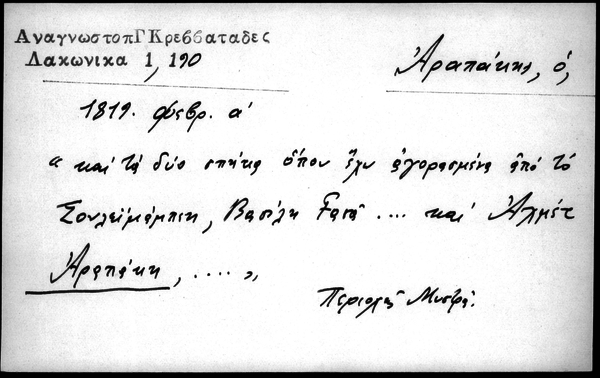 ΑναγνωστοπΓΚρεββαταδες
Λακωνικα 1, 190
Ἀραπάκης, ὁ,
1819. φεβρ. α'
" καί τά δύο σπήτια ὅπου ἔχω ἀγορασμένα ἀπό τό
Σουλεϊμάμπεη, Βασίλη .... καί Ἀχμέτ
Ἀραπάκη, .... "
Περιοχή Μυστρᾶ.